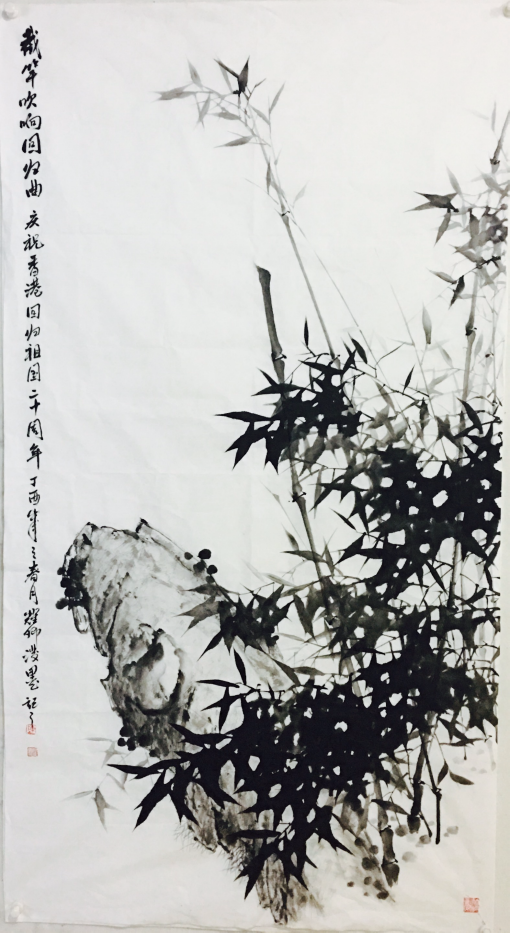 截竿吹响回归曲 庆祝香港回归祖国二十周年 丁酉年之春月 泼墨记之